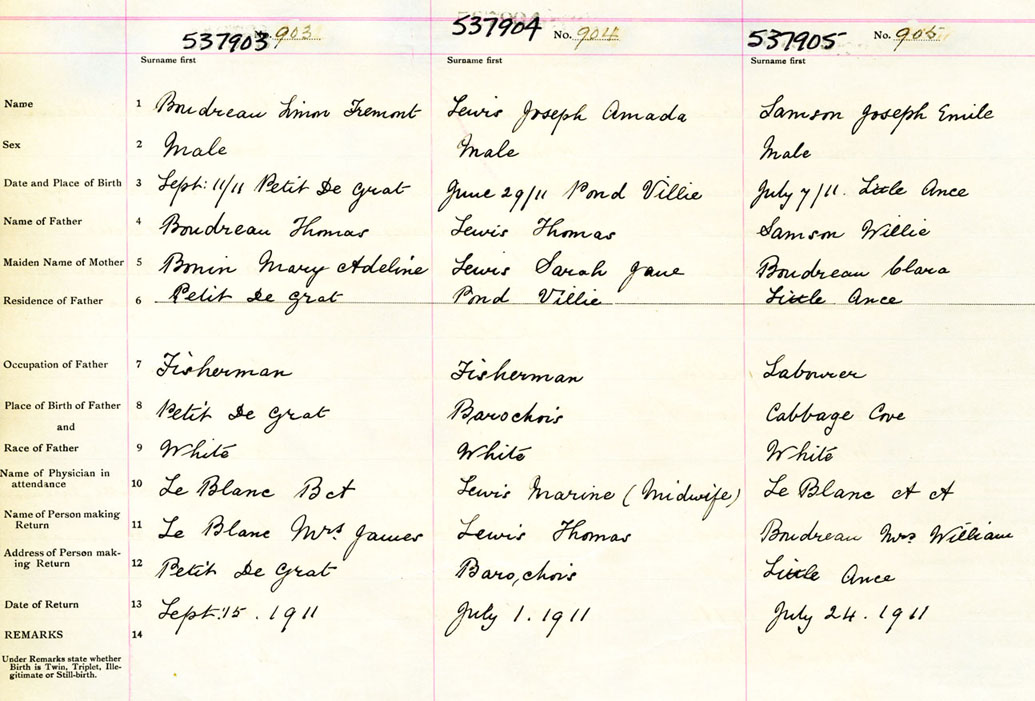 537903 No. 903 537904 No. 904 537905 No. 905
Surname first Surname first Surname first
Name 1 Boudreau Simon Fremont Lewis Joseph Amada Samson Joseph Emile
Sex 2 Male Male Male
Date and Place of Birth 3 Sept: 11/11 Petit De Grat June 29/11 Pond Villie July 7/11. Little Ance
Name of Father 4 Boudreau Thomas Lewis Thomas Samson Willie
Maiden Name of Mother 5 Bonin Mary Adeline Lewis Sarah Jane Boudreau Clara
Residence of Father 6 Petit De Grat Pond Villie Little Ance
Occupation of Father 7 Fisherman Fisherman Labourer
Place of Birth of Father 8 Petit De Grat Barochois Cabbage Cove
and
Race of Father 9 White White White
Name of Physician in
attendance 10 Le Blanc Bct Lewis Marine (Midwife) Le Blanc A A
Name of Person making
Return 11 Le Blanc Mrs James Lewis Thomas Boudreau Mrs William
Address of Person mak-
ing Return 12 Petit De Grat Barochois Little Ance
Date of Return 13 Sept. 15. 1911 July 1. 1911 July 24. 1911
REMARKS 14
Under Remarks state whether
Birth is Twin, Triplet, Ille-
gitimate or Still-birth.